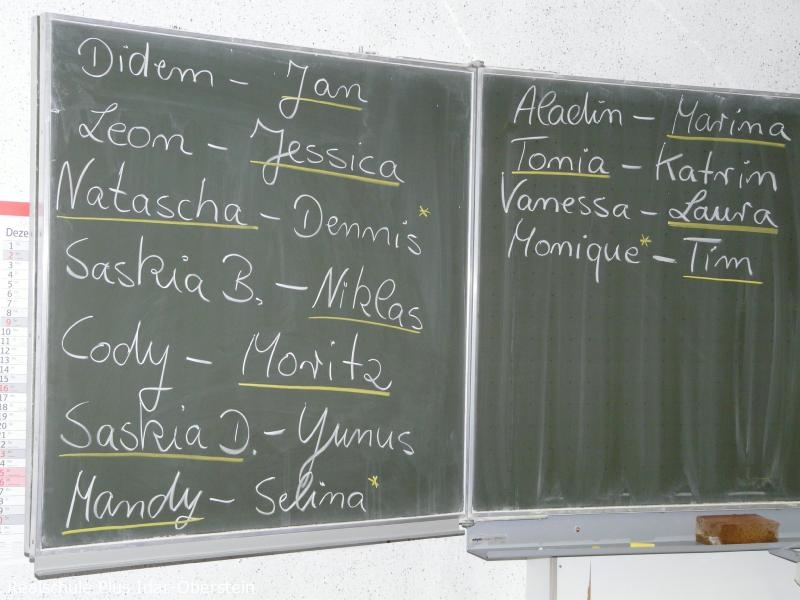 Didem – Jan
Leon – Jessica
Natascha – Dennis*
Saskia B. – Niklas
Cody – Moritz
Saskia D. – Yunus
Mandy – Selina*
Aladin – Marina
Tomia – Katrin
Vanessa – Laura
Monique* – Tim
Deze
1
2
3
4
5
6
7
8
9
10
11
12
13
14
15
16
17
18
19
20
21
22
Realschule Plus Idar-Oberstein